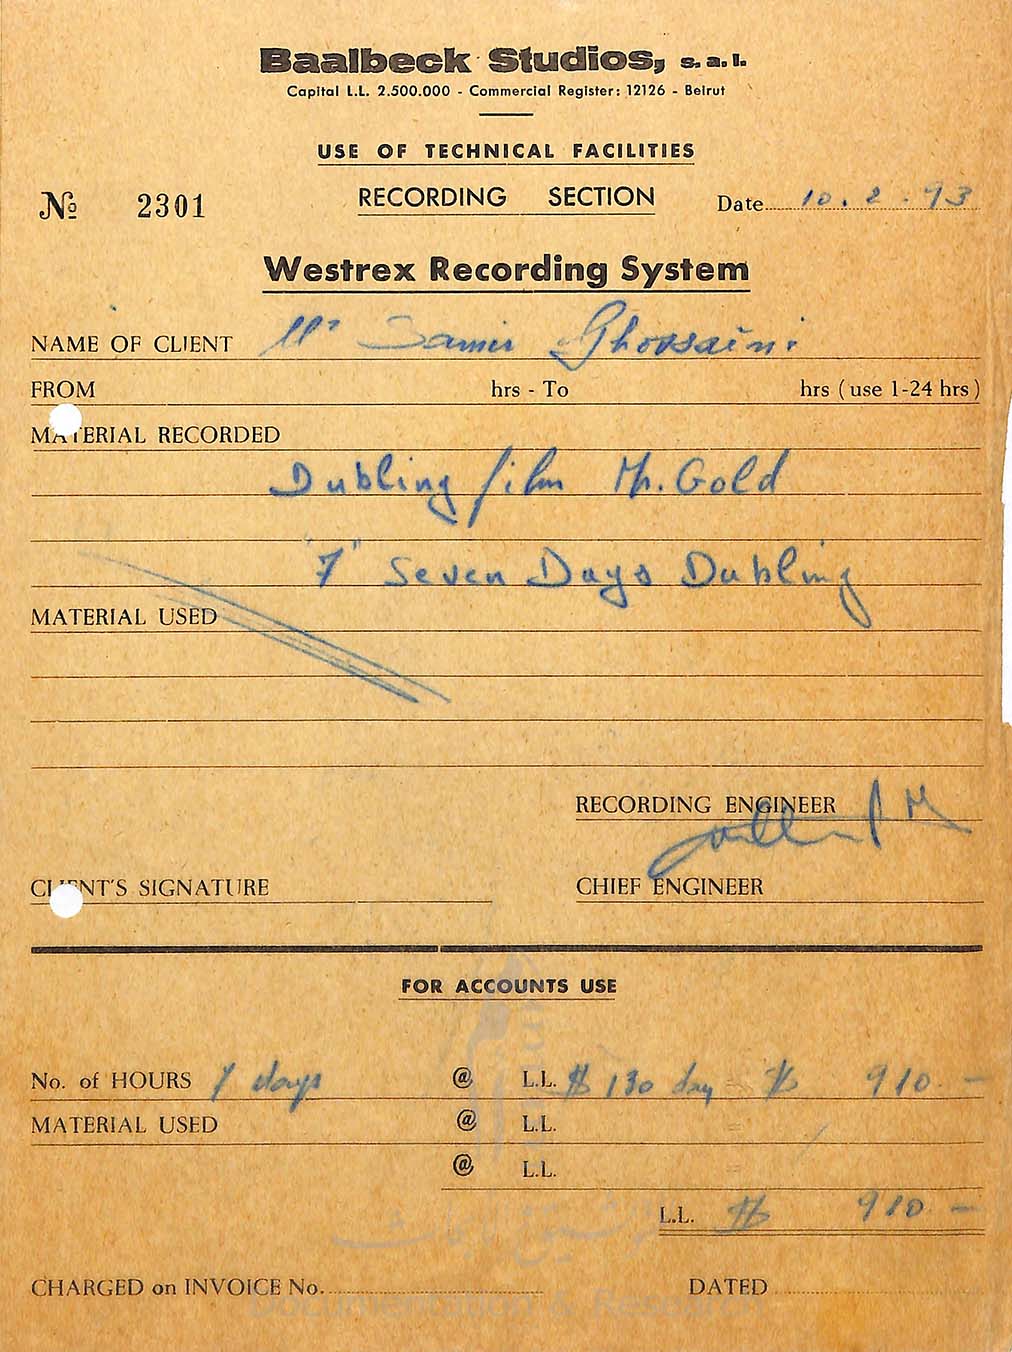 Baalbeck Studios, s.a.l.
Capital L.L. 2.500.000 - Commercial Register: 12126 - Beirut
USE OF TECHNICAL FACILITIES
№ 2301 RECORDING SECTION Date 10.2.93
Westrex Recording System
NAME OF CLIENT Mr Samir Ghossaini
FROM hrs - To hrs (use 1-24 hrs)
MATERIAL RECORDED
Dubling film Mr. Gold
"7" Seven Days Dubling
MATERIAL USED
RECORDING ENGINEER
CLIENT'S SIGNATURE CHIEF ENGINEER
FOR ACCOUNTS USE
No. of HOURS 7 days @ L.L. $ 130 day = $ 910.-
MATERIAL USED @ L.L. =
@ L.L. =
L.L. $ 910 -
للتوثيق والأبحاث
CHARGED on INVOICE No. DATED
Documentation & Research